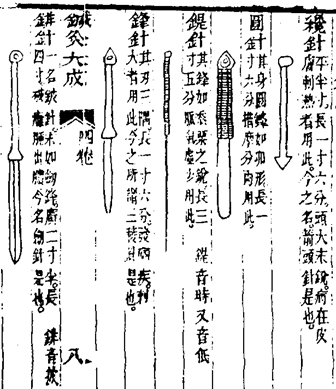 鑱針平半寸長一寸六分頭大末銳病在皮
膚刺熱者用此今之名箭頭針是也
圓針其身圓鋒如卵形長一
寸六分揩摩分肉用此
鍉針其鋒如黍粟之銳長三
寸五分脈氣虛少用此 鍉音時又音低
鋒針其刃三隅長一寸六分發痼疾刺
大者用此今之所謂三稜針是也
針灸大成 四卷 八
一名鈹針末如劍鋒廣二寸半長
四寸破癰腫出膿今名劍針是也